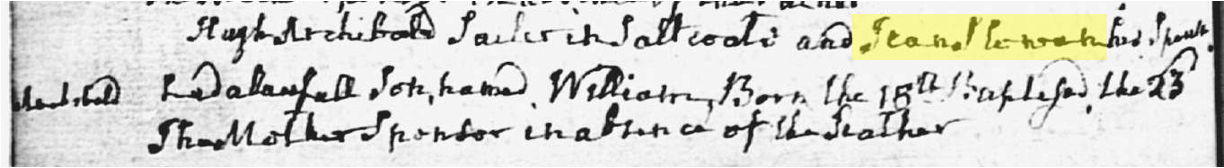 Hugh Archibald Sailer in Saltcoats and Jean Stewart his Spouse
Archibald Had a lawfull Son named William, Born the 18th Baptised, the 23
The Mother Sponsor in absence of the Father